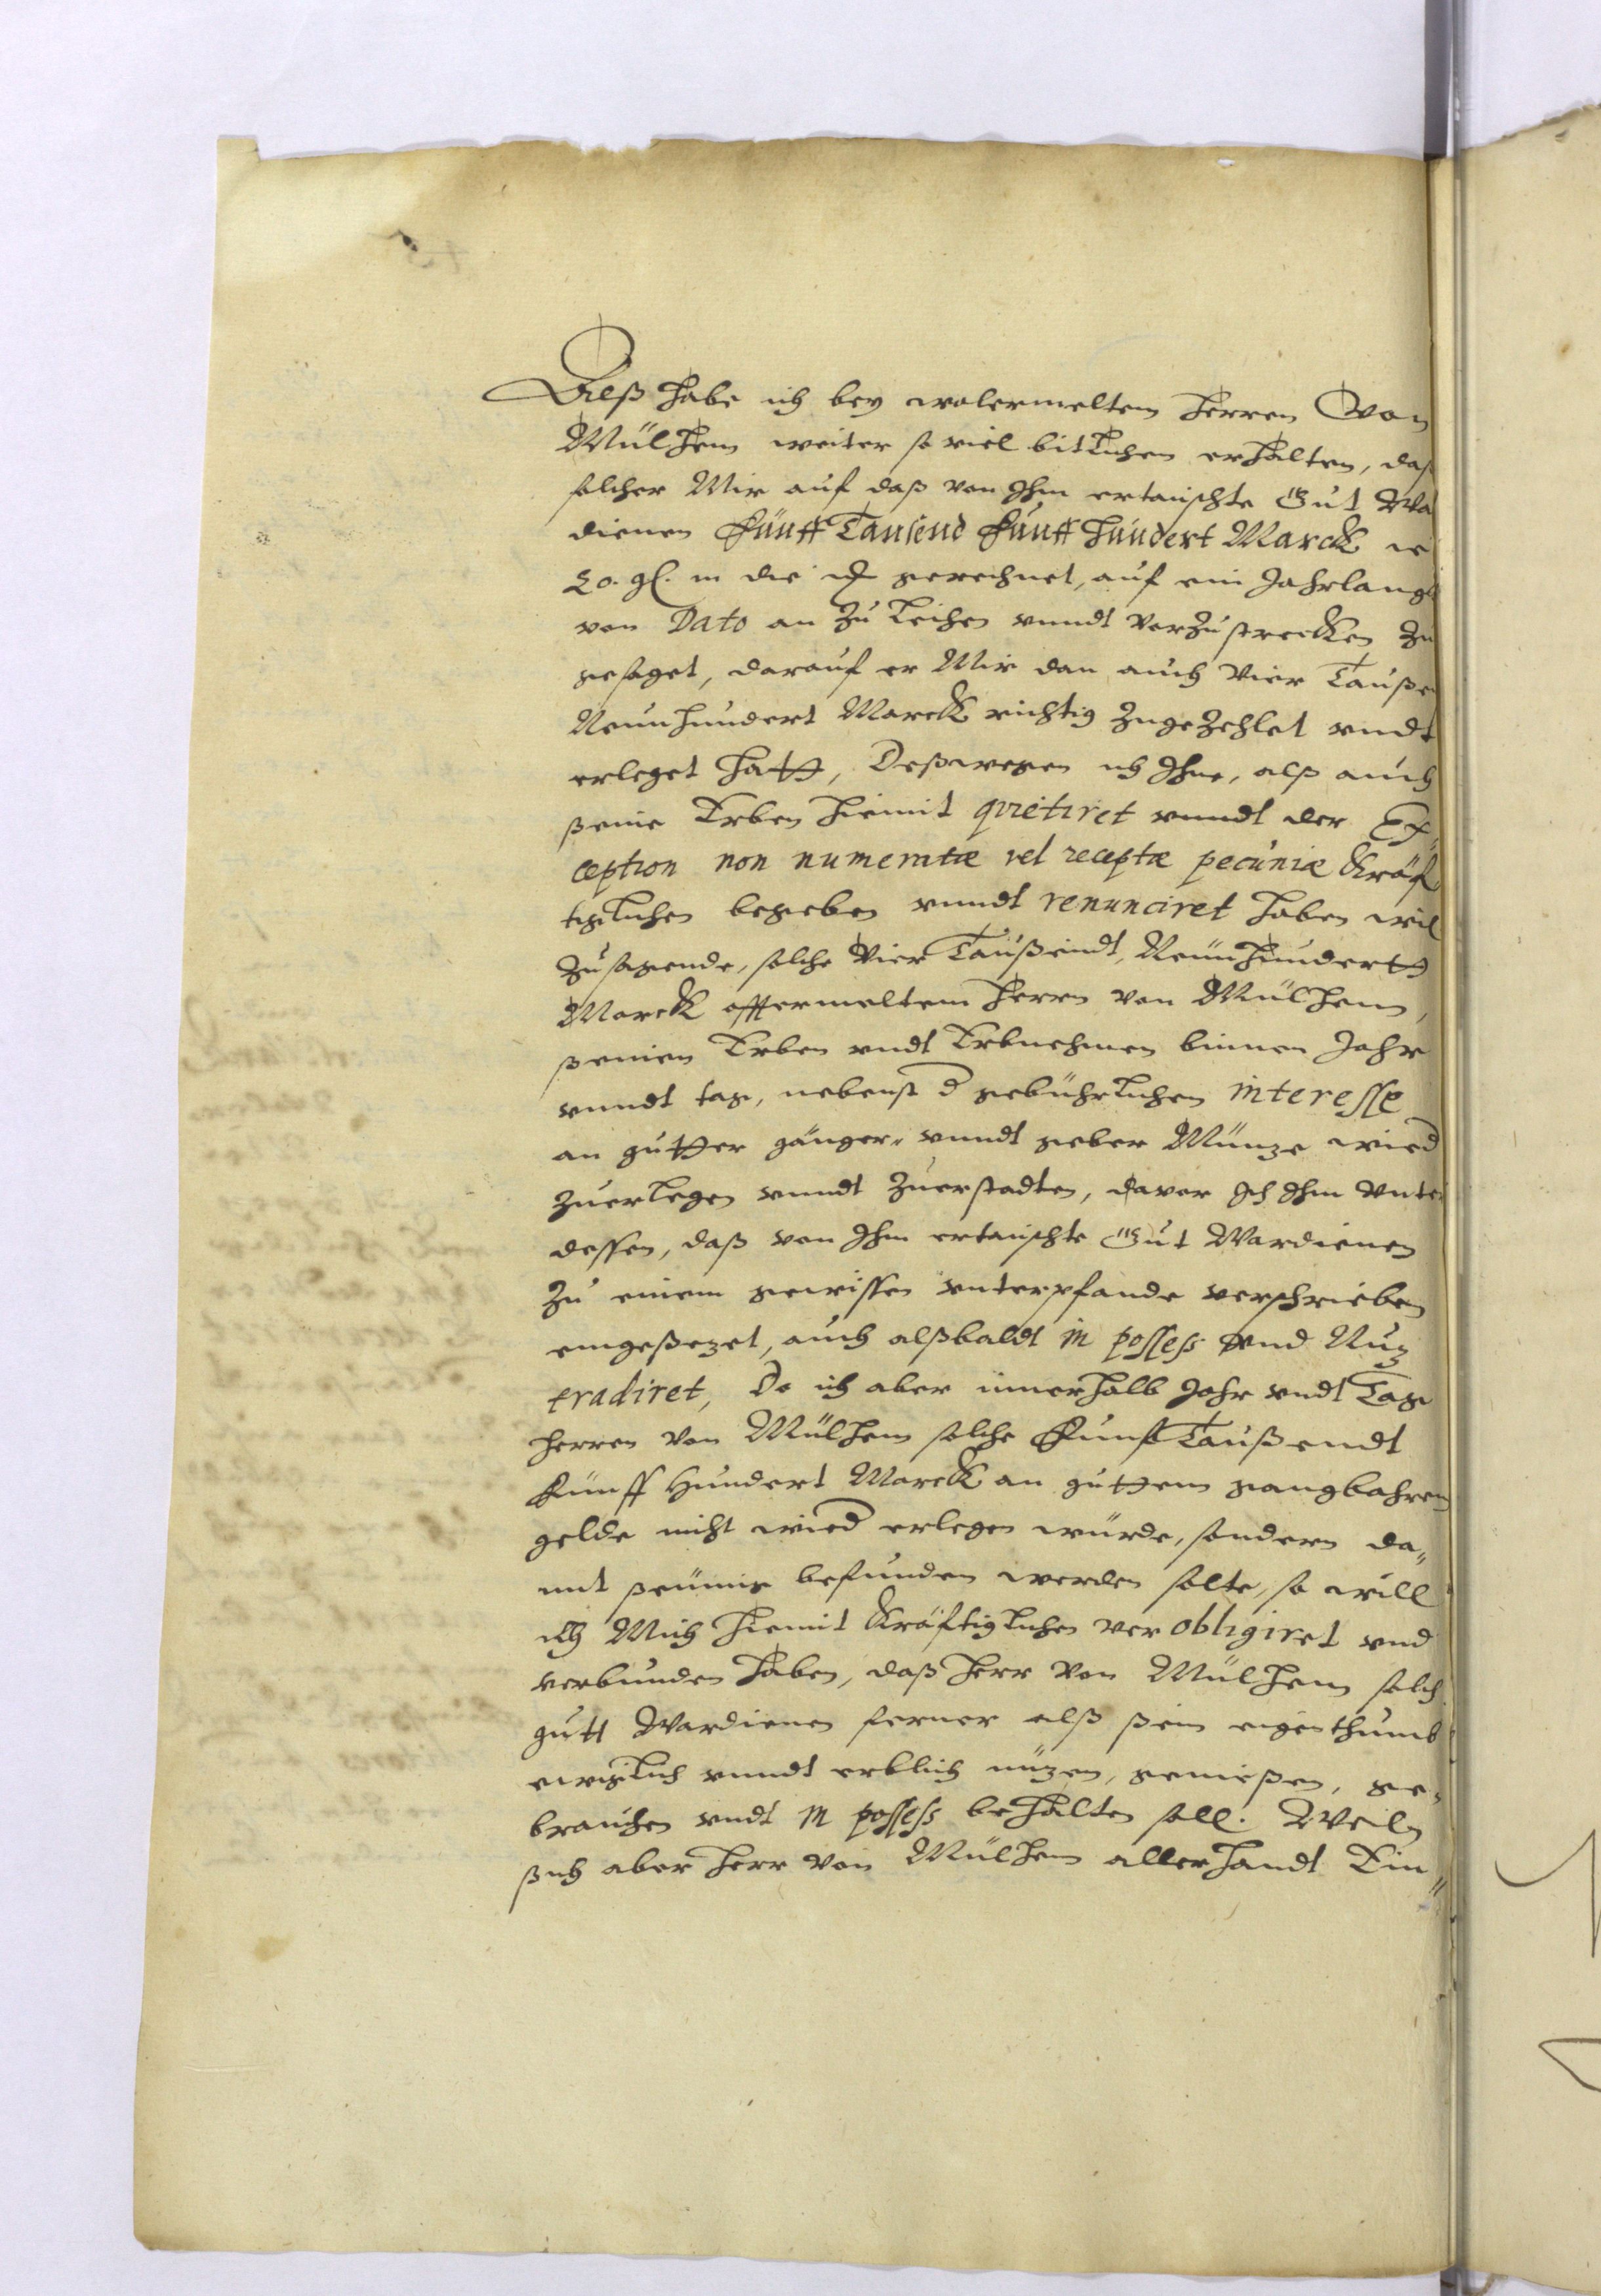 Alß habe ich bey wolermelten Herren Von
Mülhem weiter so viel bitlichen erhalten, daß
solcher Mir auf daß von Ihm ertauschte Gut Wa
dienen Fünff Tausend Fünff hundert Marck ie
20. gl. in die gerechnet, auf ein Jahrlang
von Dato an zu leihen vnndt vorzustrecken zu
gesaget, darauf er Mir dan auch Vier Tauße
Neunhundert Marck richtig zugezehlet vndt
erleget hatt, Deßwegen ich Ihne, alß auch
seine Erben hiemit qvietiret vnndt der Ex
ception non numeratæ vel receptæ pecuniæ Kräf
tiglichen begeben vnndt renunciret haben wil
Zusagende, solche Vier Taußendt, Neunhundertt
Marck offtermeltem Herrn von Mülhem,
seinen Erben vndt Erbnehmen binnen Jahr
vnndt tag, nebenst d gebührlichen interesse
an gutter gänger- vnndt geber Müntze wied
zuerlegen vnndt zuerstadten, davor Ich Ihm Vnter
dessen, daß von Ihm ertauschte Gut Wardienen
zu einem gewissen vnterpfande verschrieben
eingesezet, auch alßbaldt in possess vnd Nuz
tradiret, Do ich aber innerhalb Jahr vndt Tage
Herren von Mülhem solche Funf Taußendt
Fünff Hundert Marck an guttem gangbahren
gelde nicht wied erlegen würde, sondern da„
mit seumig befunden werden solte, so will
Ich Mich hiemit Kräftiglichen verobligiret vnd
verbunden haben, daß Herr von Mülhem solch
gutt Wardienen ferner alß sein eigenthumb
ewiglich vnndt erblich nüzen, genießen, ge„
brauchen vndt in possess behalten soll. Weiln
sich aber Herr von Mülhem allerhandt Ein„